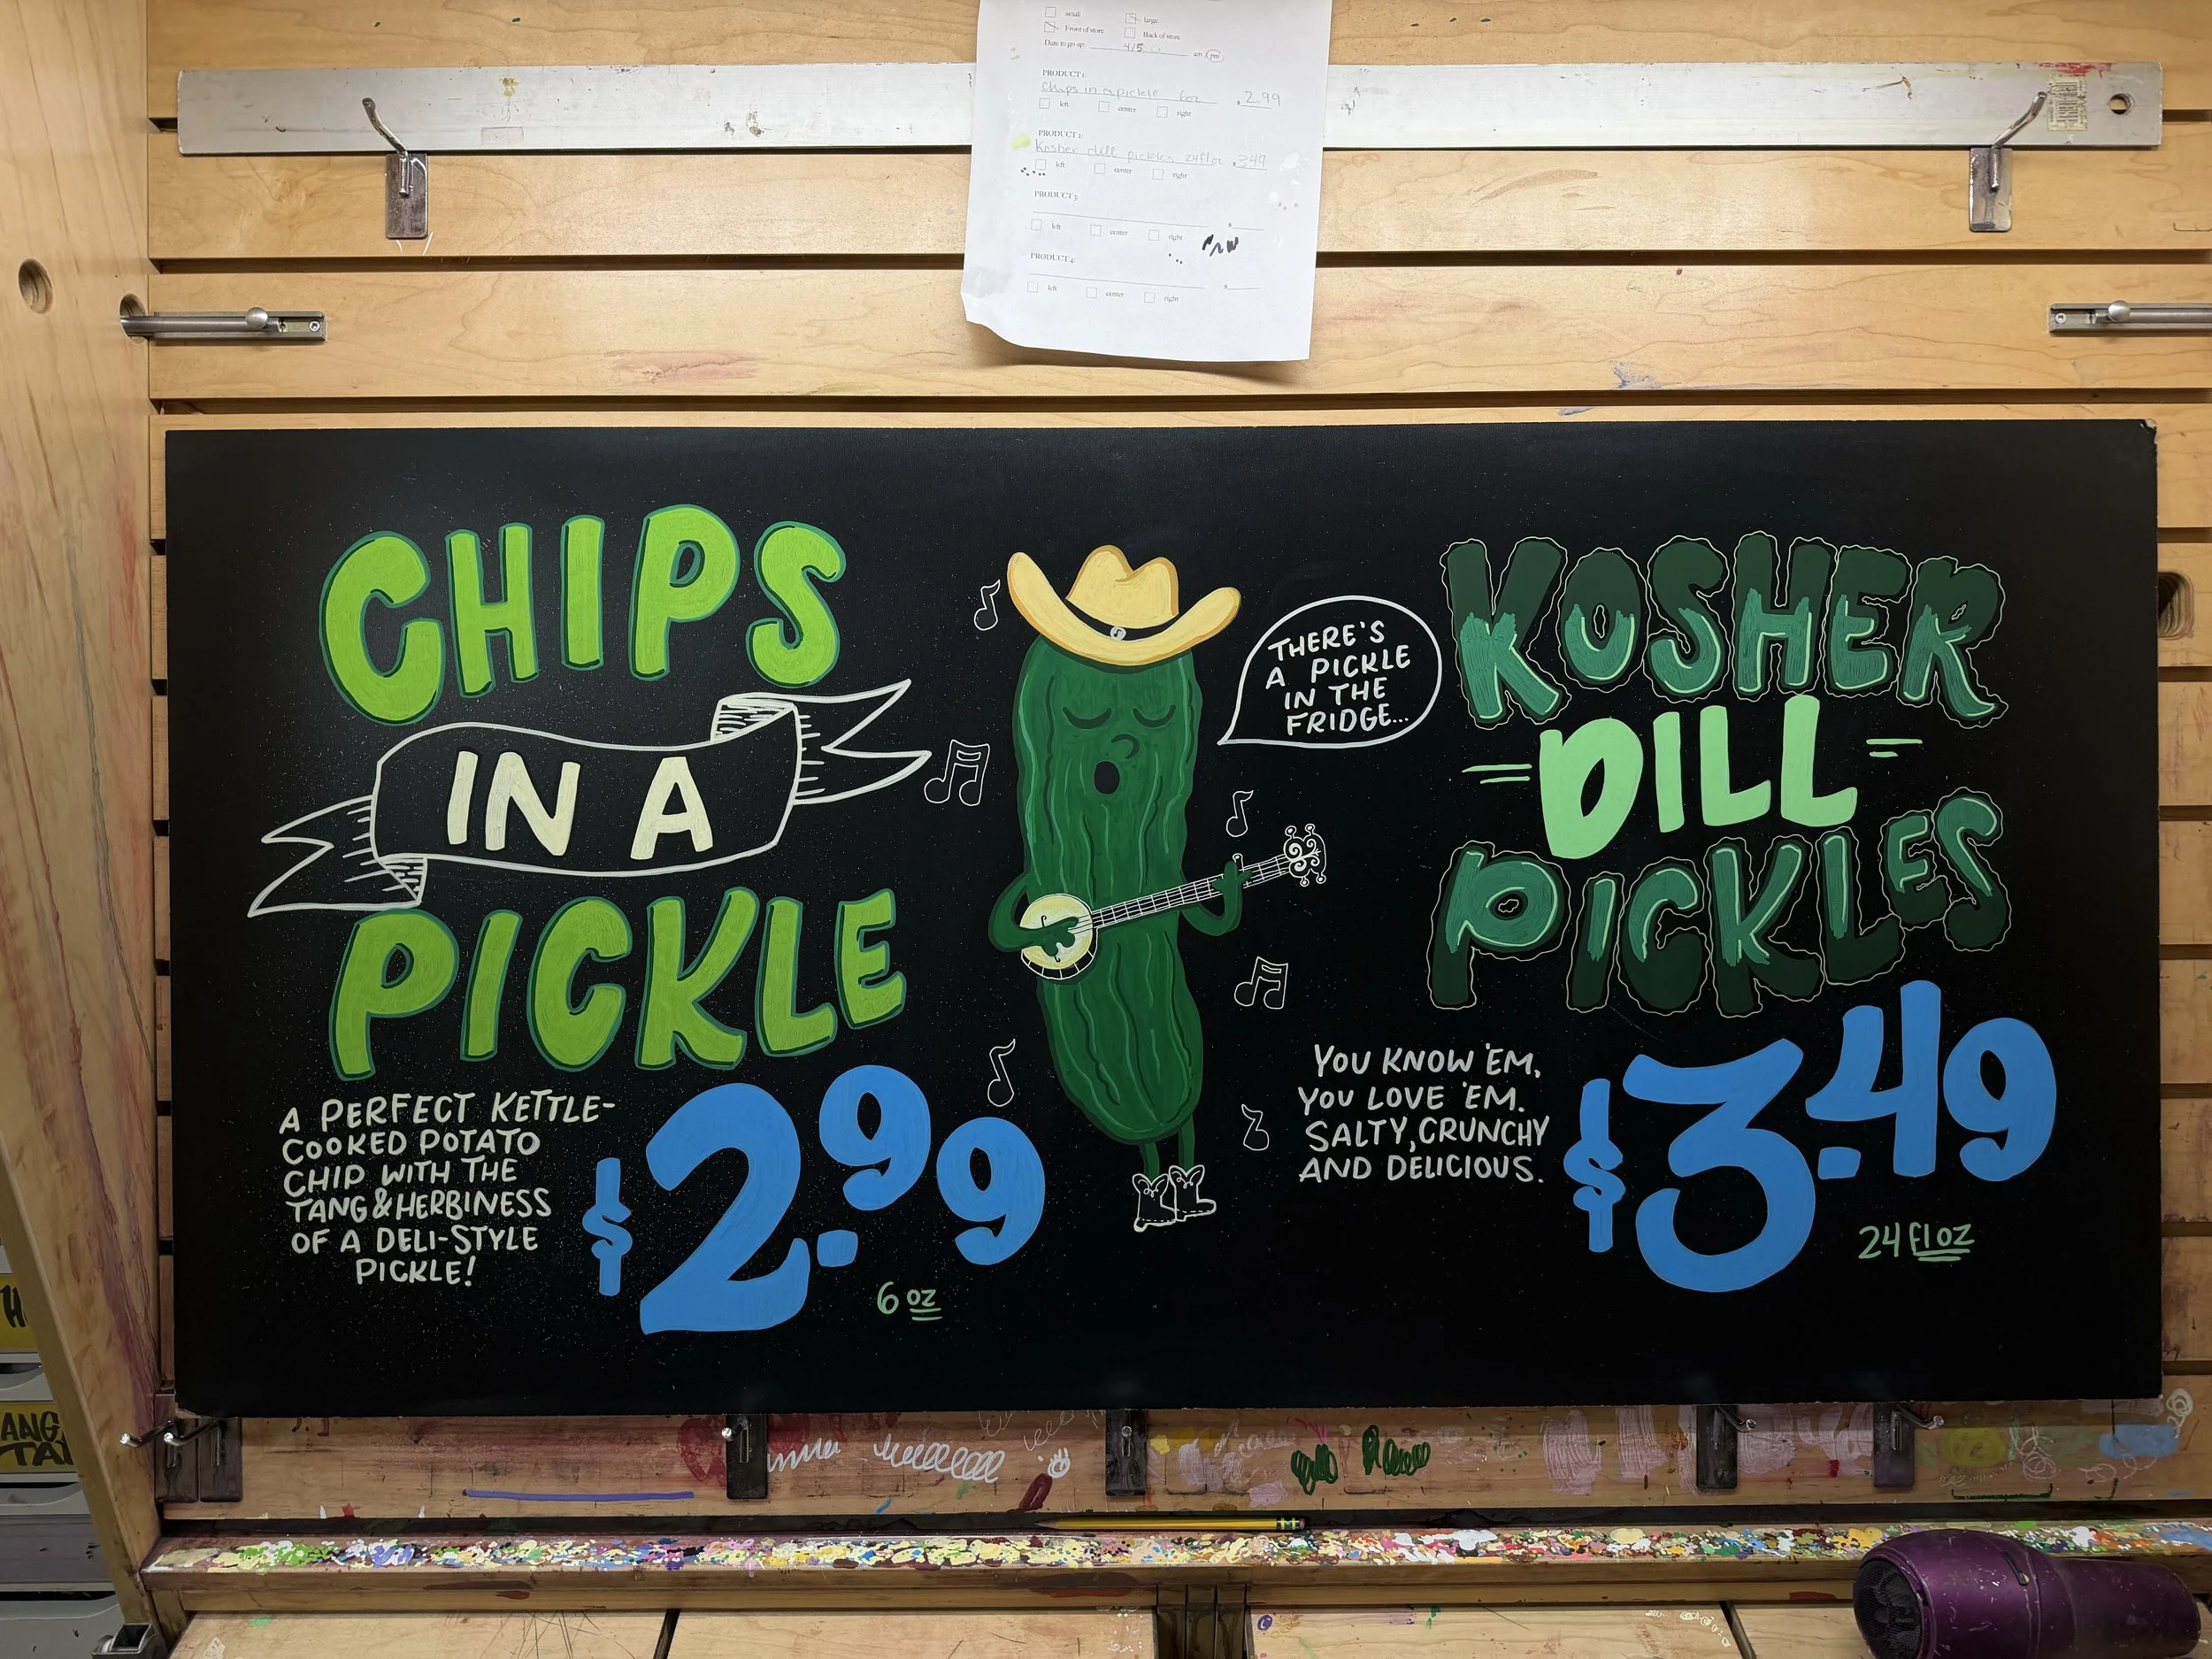 small
large
Front of store
Back of store
Date to go up: 4/5 am pm
PRODUCT 1:
Chips in a pickle 6oz . 2.99
left center right
PRODUCT 2:
Kosher dill pickles 24floz . 3.49
left center right
PRODUCT 3:
left center right
PRODUCT 4:
left center right
CHIPS
IN A
PICKLE
A PERFECT KETTLE-
COOKED POTATO
CHIP WITH THE
TANG & HERBINESS
OF A DELI-STYLE
PICKLE!
$2.99
6 oz
THERE'S
A PICKLE
IN THE
FRIDGE...
KOSHER
DILL
PICKLES
YOU KNOW 'EM,
YOU LOVE 'EM.
SALTY, CRUNCHY
AND DELICIOUS.
$3.49
24 fl oz